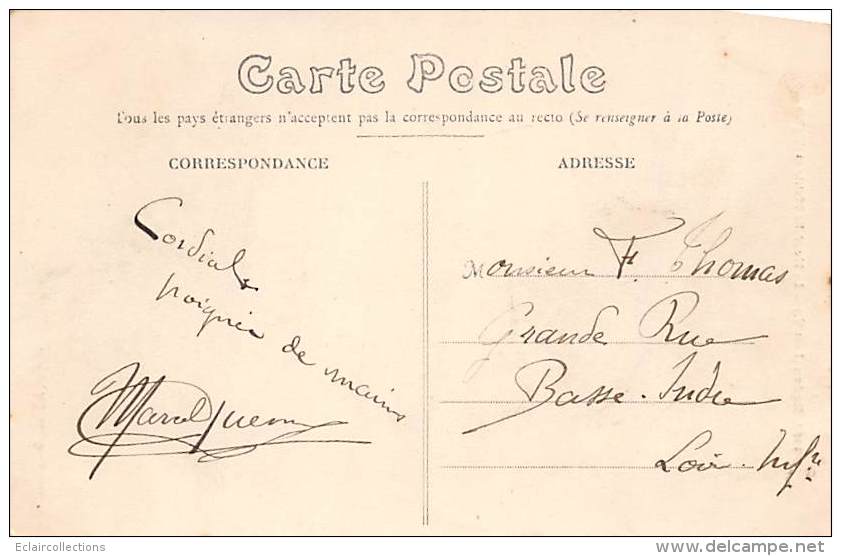 Carte Postale
Tous les pays étrangers n'acceptent pas la correspondance au recto (Se renseigner à la Poste)
CORRESPONDANCE
ADRESSE
Cordiale
poignée de mains
Marcel
Monsieur F. Thomas
Grande Rue
Basse-Indre
Loir. Infre
Eclaircollections
www.delcampe.net